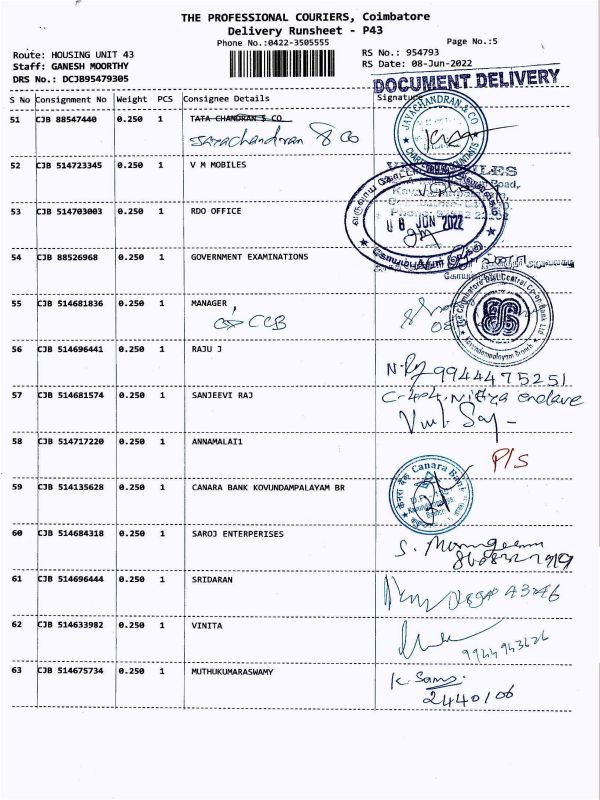 THE PROFESSIONAL COURIERS, Coimbatore
Delivery Runsheet - P43
Phone No.:0422-3505555
Page No.:5
Route: HOUSING UNIT 43
RS No.: 954793
Staff: GANESH MOORTHY
RS Date: 08-Jun-2022
DRS No.: DCJB95479305
DOCUMENT DELIVERY
S No Consignment No Weight PCS Consignee Details Signature
51 CJB 88547440 0.250 1 TATA CHANDRAN & CO
Jayachandran & CO
JAYACHANDRAN & CO
CHARTERED ACCOUNTANTS
52 CJB 514723345 0.250 1 V M MOBILES
53 CJB 514703003 0.250 1 RDO OFFICE
08 JUN 2022
54 CJB 88526968 0.250 1 GOVERNMENT EXAMINATIONS
55 CJB 514681836 0.250 1 MANAGER
CCB
The Coimbatore Dist. Central Co-op Bank Ltd
Kavundampalayam Branch
56 CJB 514696441 0.250 1 RAJU J
9944475251
57 CJB 514681574 0.250 1 SANJEEVI RAJ
C-404, Nithya enclave
58 CJB 514717220 0.250 1 ANNAMALAI1
P/S
59 CJB 514135628 0.250 1 CANARA BANK KOVUNDAMPALAYAM BR
केनरा बैंक Canara Bank
60 CJB 514684318 0.250 1 SAROJ ENTERPERISES
61 CJB 514696444 0.250 1 SRIDARAN
62 CJB 514633982 0.250 1 VINITA
63 CJB 514675734 0.250 1 MUTHUKUMARASWAMY
2440106